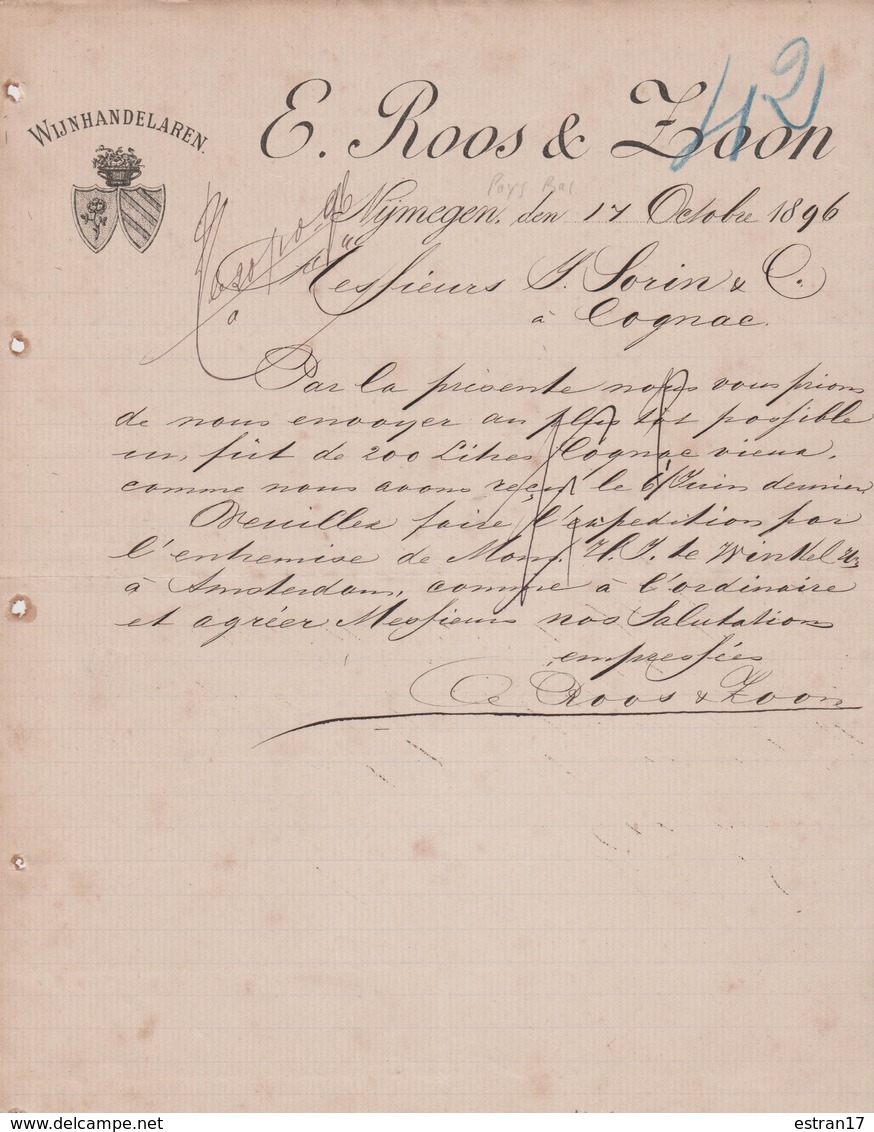 WIJNHANDELAREN.
E. Roos & Zoon
42
Pays Bas
Nijmegen, den 17 Octobre 1896
Messieurs J. Sorin & Co.
à Cognac.
Par la présente nous vous prions
de nous envoyer au plus tôt possible
un fût de 200 Litres Cognac vieux,
comme nous avons reçu le 6 Juin dernier.
Veuillez faire l'expedition par
l'entremise de Mons. H. J. te Winkel
à Amsterdam, comme à l'ordinaire
et agréer Messieurs nos Salutations
empressées
E Roos & Zoon
www.delcampe.net
estran17